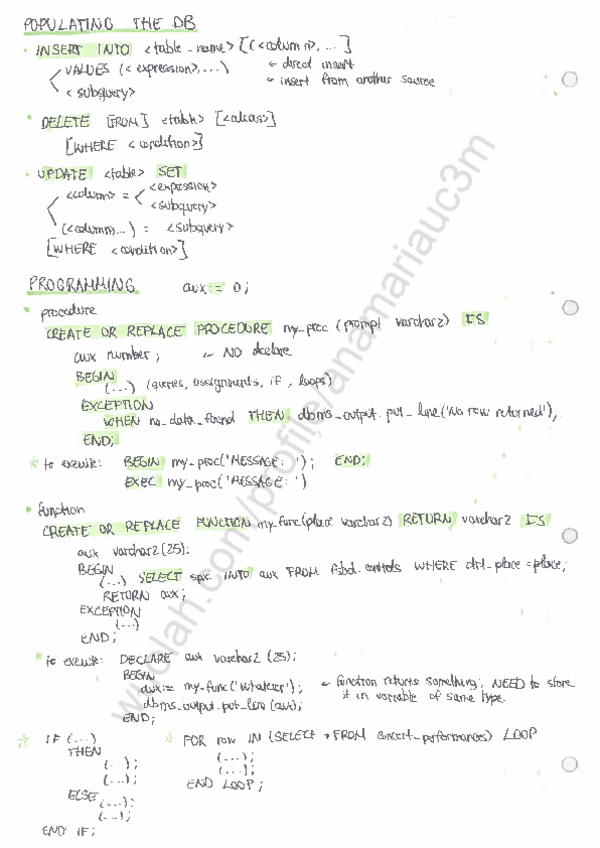 POPULATING THE DB
• INSERT INTO <table_name> [(<column>, ...]
VALUES (<expression>, ...) ← direct insert
<subquery> ← insert from another source
• DELETE [FROM] <table> [<alias>]
[WHERE <condition>]
• UPDATE <table> SET
<column> = <expression>
<subquery>
(<column>, ...) = <subquery>
[WHERE <condition>]
PROGRAMMING aux := 0;
• procedure
CREATE OR REPLACE PROCEDURE my_proc (prompt varchar2) IS
aux number; ← NO declare
BEGIN
(...) (queries, assignments, if, loops)
EXCEPTION
WHEN no_data_found THEN dbms_output.put_line('No row returned');
END;
* to execute: BEGIN my_proc('MESSAGE: '); END;
EXEC my_proc('MESSAGE: ')
• function
CREATE OR REPLACE FUNCTION my_func(place varchar2) RETURN varchar2 IS
aux varchar2(25);
BEGIN
(...) SELECT spic INTO aux FROM WHERE = place;
RETURN aux;
EXCEPTION
(...)
END;
* to execute: DECLARE aux varchar2(25);
BEGIN
aux := my_func('whatever'); ← function returns something, NEED to store
it in variable of same type.
dbms_output.put_line(aux);
END;
* IF (...) * FOR row IN (SELECT * FROM concert_performances) LOOP
THEN (...);
(...); (...);
(...); END LOOP;
ELSE (...);
(...);
END IF;
wuolah.com/profile/anamariauc3m